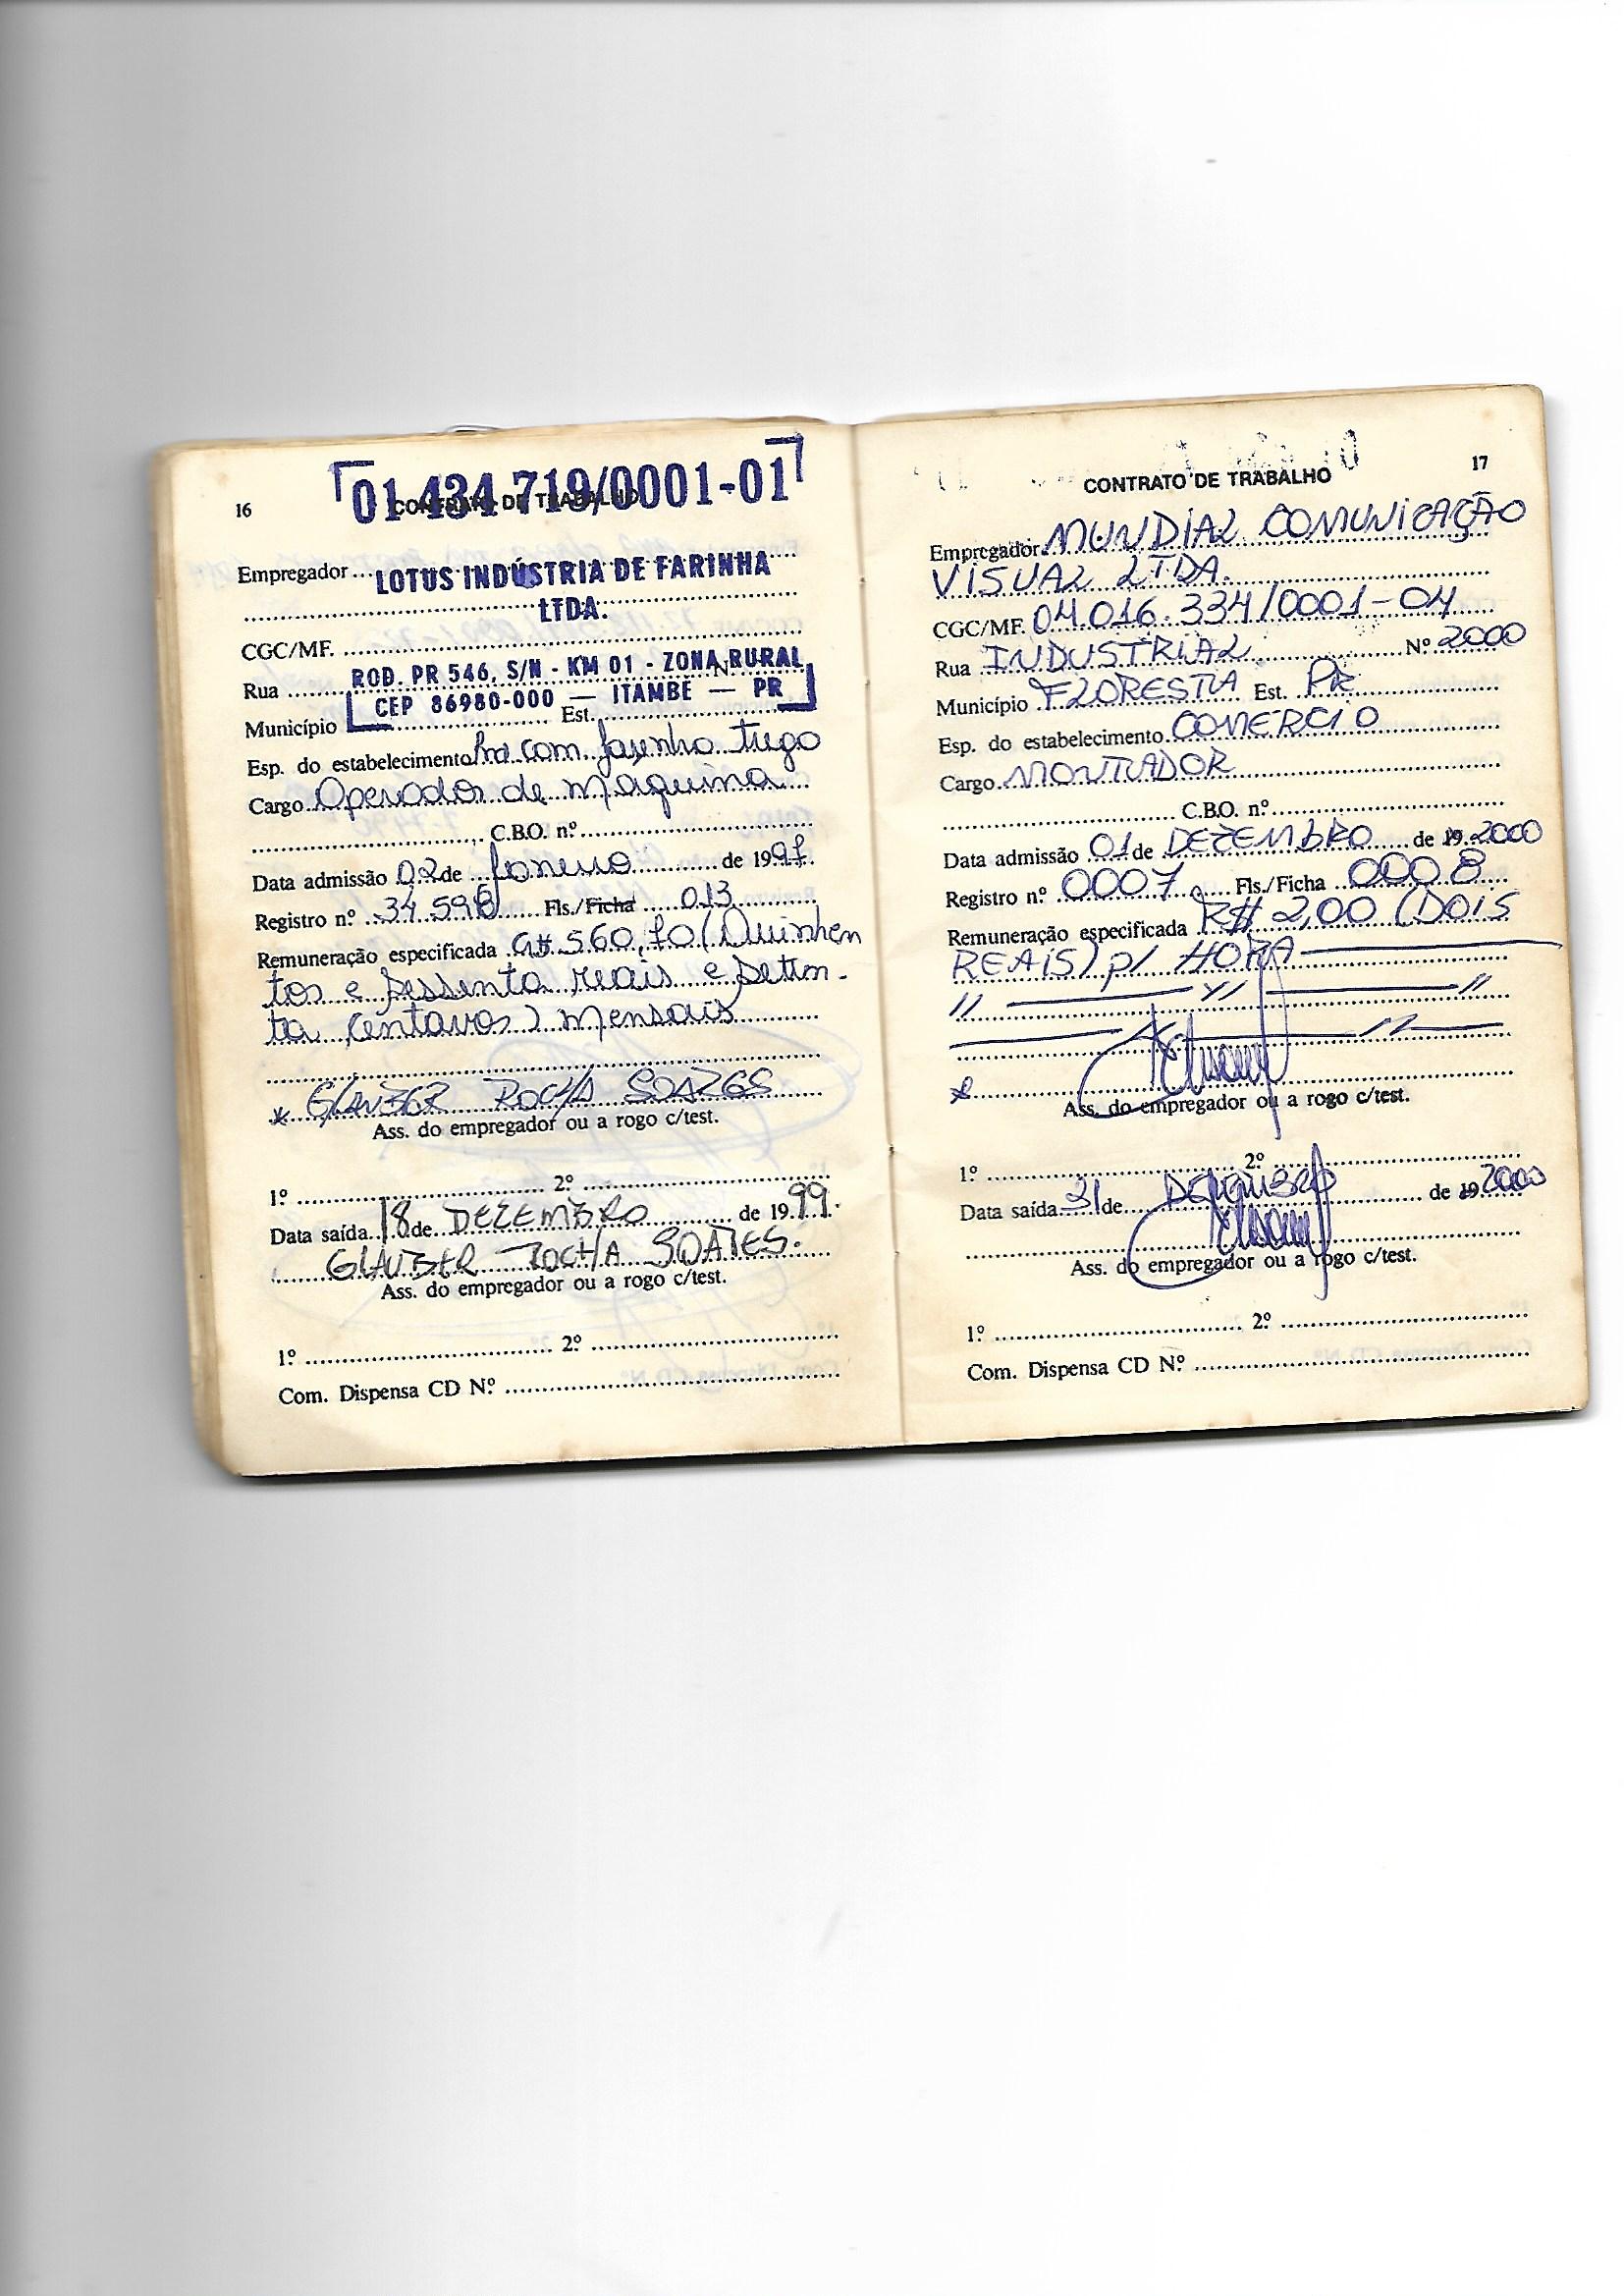 16
01.434.719/0001-01
CONTRATO DE TRABALHO
Empregador LOTUS INDÚSTRIA DE FARINHA
LTDA.
CGC/MF.
Rua ROD. PR 546, S/N - KM 01 - ZONA RURAL
Município CEP 86980-000 — ITAMBÉ — PR
Est.
Esp. do estabelecimento com farinha trigo
Cargo Operador de Maquina
C.B.O. nº
Data admissão 02 de Janeiro de 1997.
Registro nº 34.598 Fls./Ficha 013
Remuneração especificada 560,70 (Quinhen
tos e sessenta reais e seten-
ta centavos) mensais
* GLAUBER ROCHA SOARES
Ass. do empregador ou a rogo c/test.
1º 2º
Data saída 18 de DEZEMBRO de 1999.
GLAUBER ROCHA SOARES.
Ass. do empregador ou a rogo c/test.
1º 2º
Com. Dispensa CD Nº
17
CONTRATO DE TRABALHO
Empregador MUNDIAL COMUNICAÇÃO
VISUAL LTDA.
CGC/MF. 04.016.334/0001-04
Rua INDUSTRIAL Nº 2000
Município FLORESTA Est. PR
Esp. do estabelecimento COMÉRCIO
Cargo MONTADOR
C.B.O. nº
Data admissão 01 de DEZEMBRO de 19 2000
Registro nº 0007 Fls./Ficha 0008
Remuneração especificada R$ 2,00 (DOIS
REAIS) P/ HORA
Ass. do empregador ou a rogo c/test.
1º 2º
Data saída 31 de DEZEMBRO de 19 2000
Ass. do empregador ou a rogo c/test.
1º 2º
Com. Dispensa CD Nº